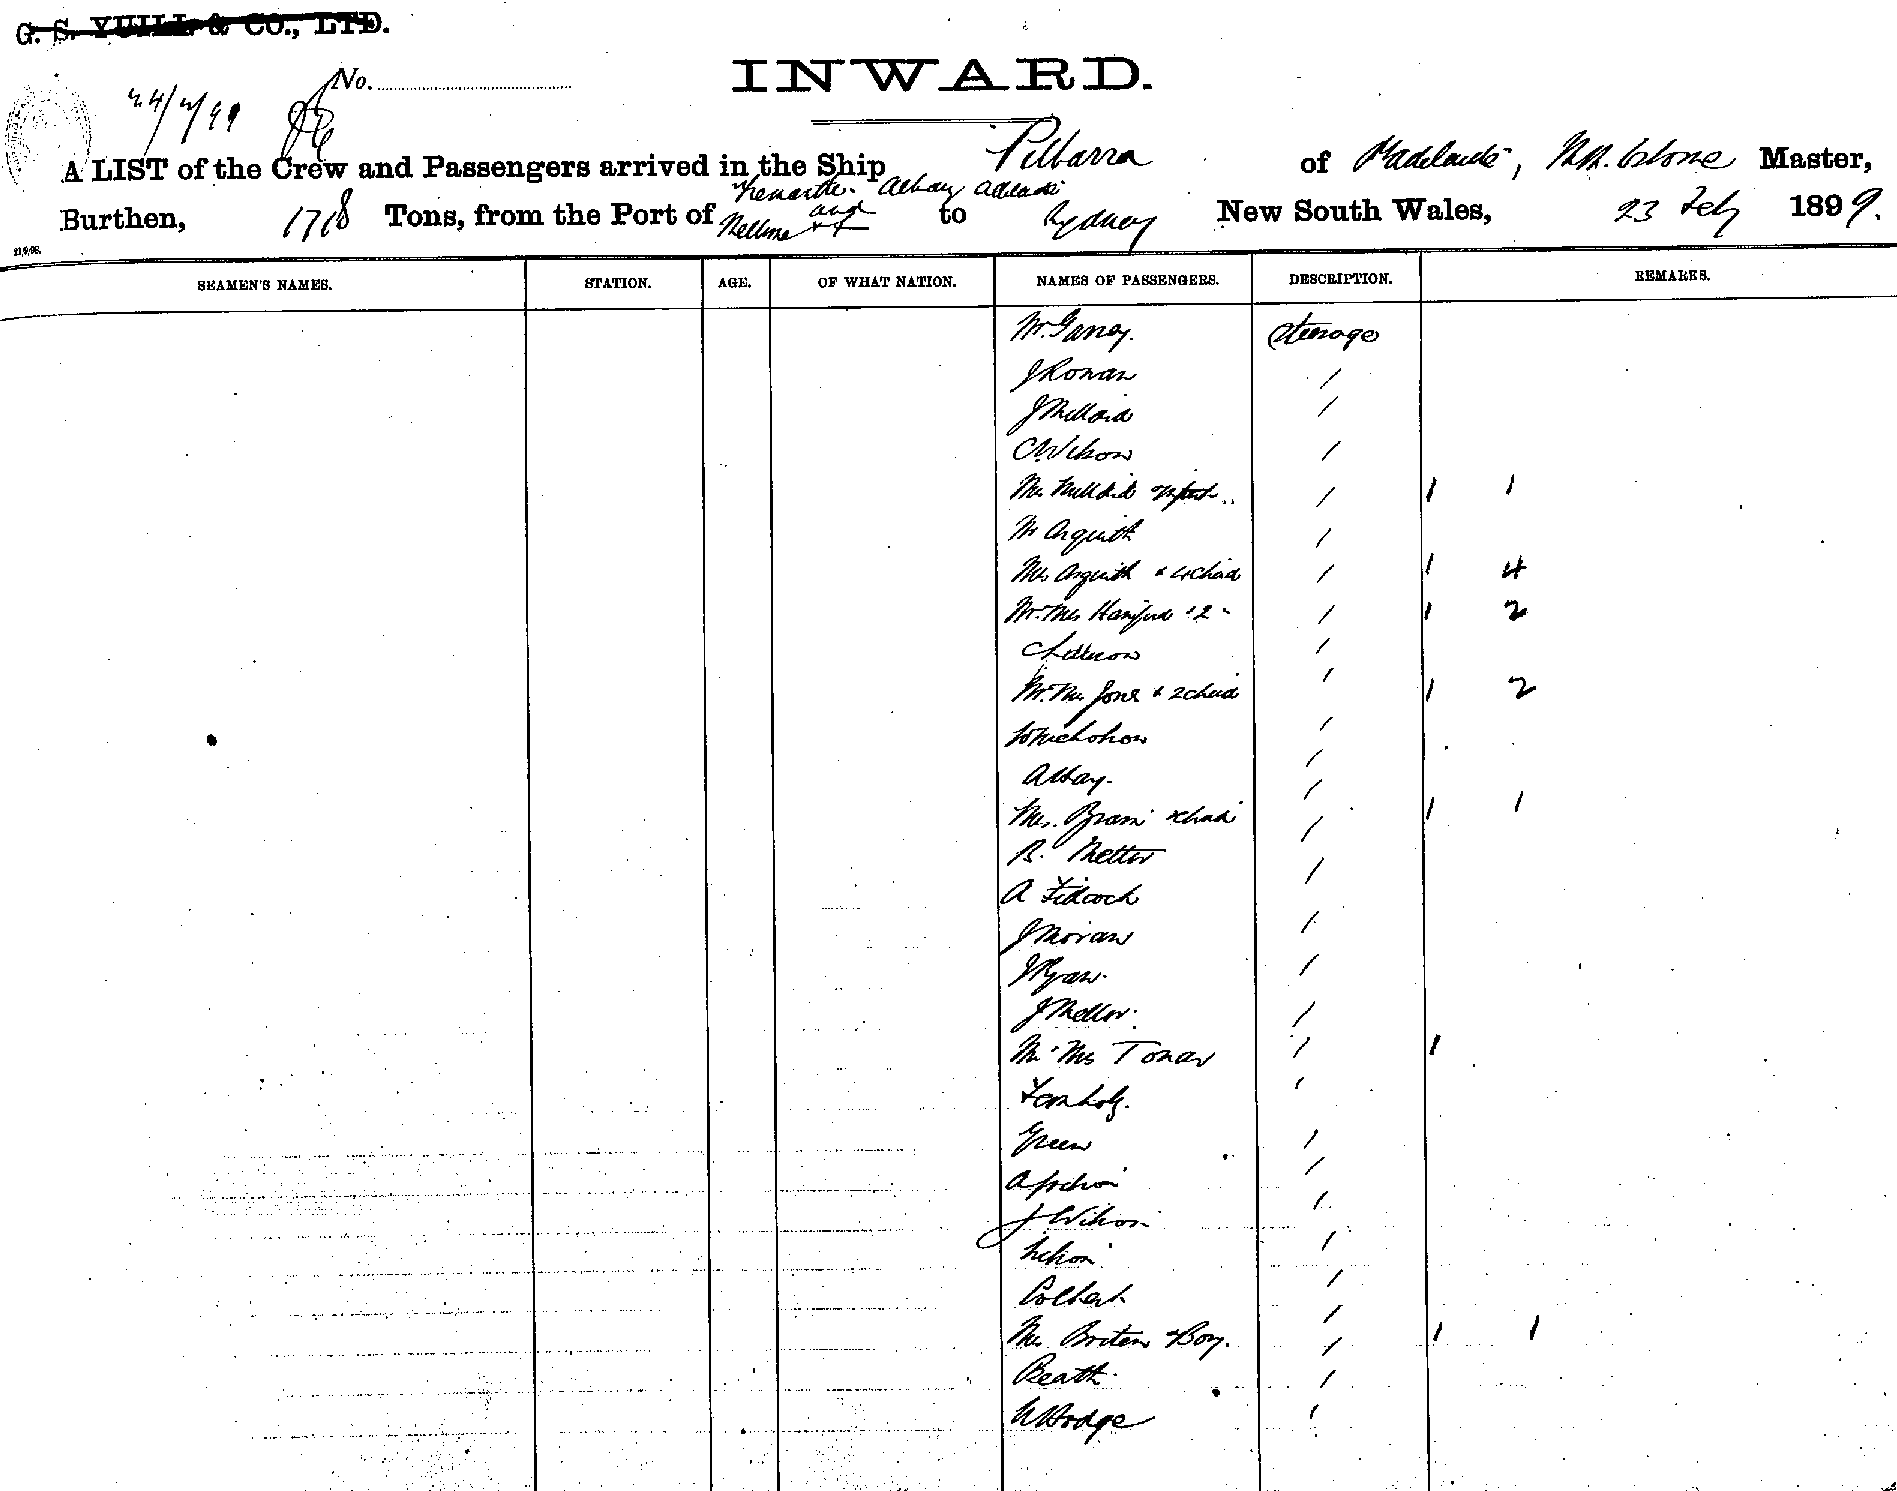 G. S. YUILL & CO., LTD.
No.
INWARD.
24/2/99
A LIST of the Crew and Passengers arrived in the Ship Pilbarra of Adelaide, Master,
Fremantle. Albany Adelaide
and
Burthen, 1718 Tons, from the Port of Melbne to Sydney New South Wales, 23 Feby 1899.
21/9/98.
SEAMEN'S NAMES. STATION. AGE. OF WHAT NATION. NAMES OF PASSENGERS. DESCRIPTION. REMARKS.
Mr Garvey. Steerage
J Ronan /
J Millard /
C Wilson /
Mrs Millard & Infant / 1 1
Mr Asquith /
Mrs Asquith & 4 Child / 1 4
Mr. Mrs Hanford & 2 " / 1 2
/
Mr. Mrs Jones & 2 child / 1 2
W Nicholson /
A Hay. /
Mrs. & child / 1 1
R. Mellor /
A Fidcock /
J Moran /
J Ryan. /
J Mellor. /
Mr Mrs Toner / 1
/
Green /
/
J Wilson /
/
Colbert /
Mrs Briten & Boy. / 1 1
Reath. /
Hodge /